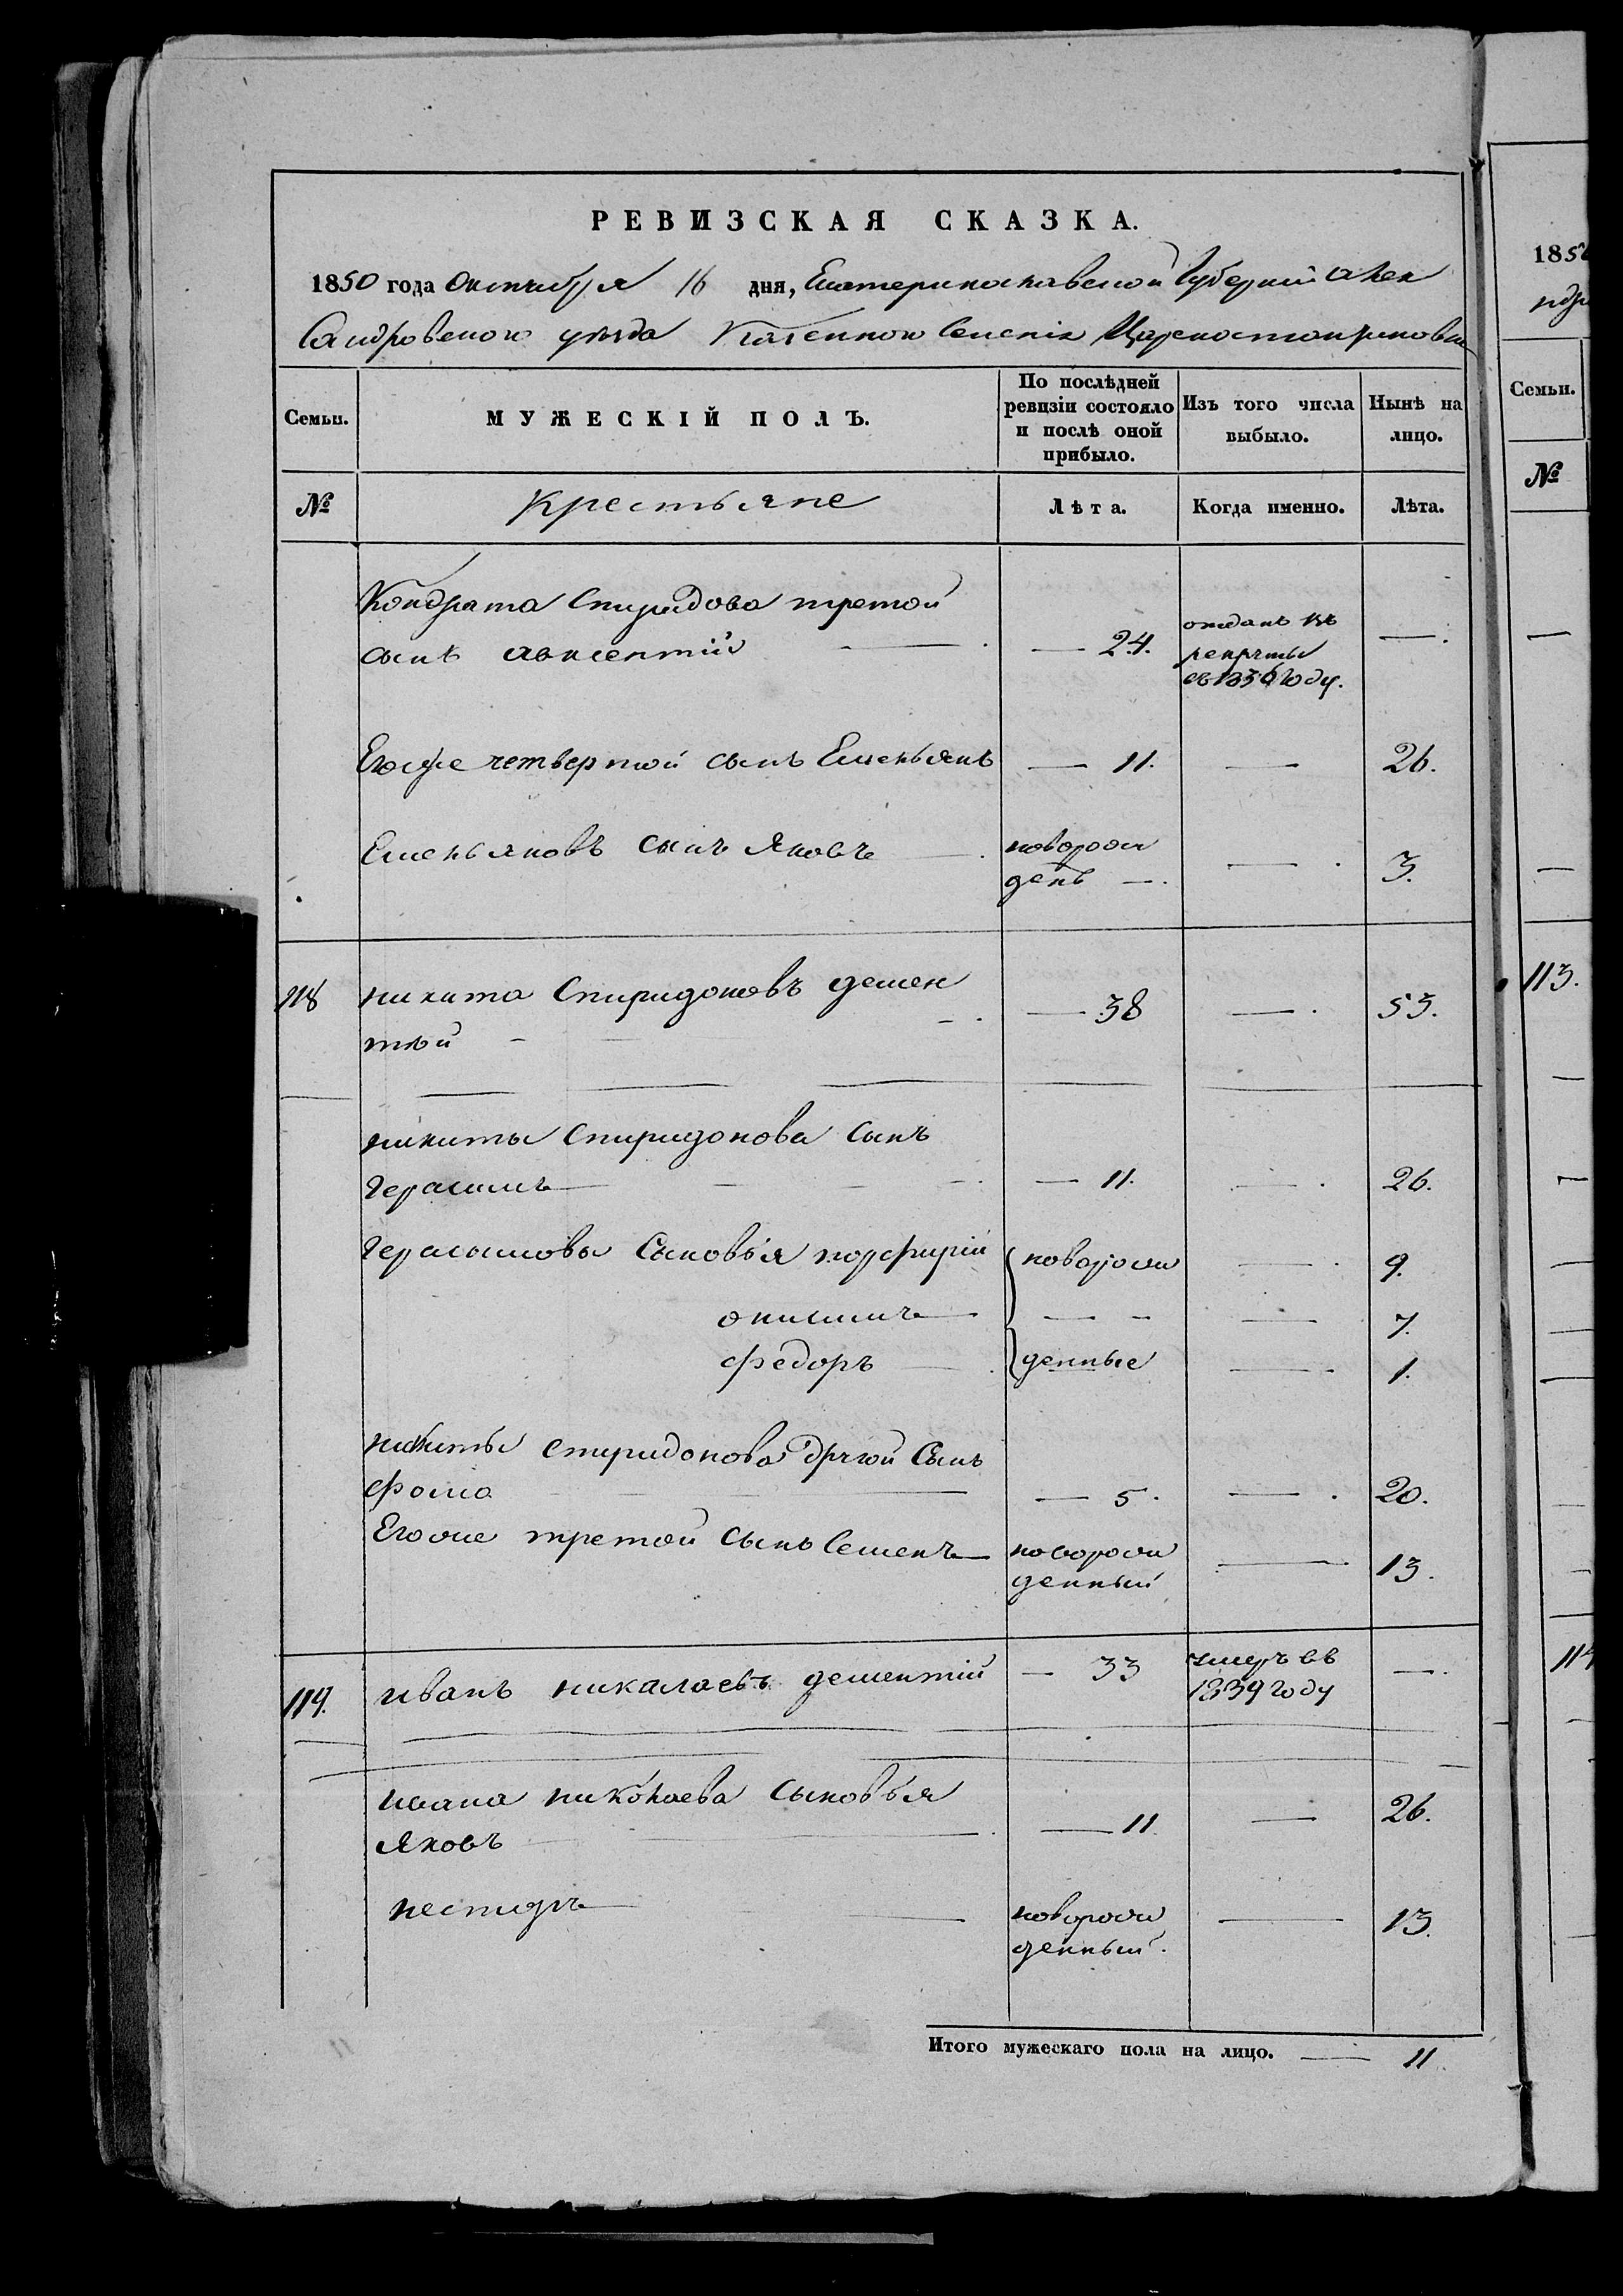 РЕВИЗСКАЯ СКАЗКА.
1850 года Октября 16 дня, Екатеринославской Губернии Алек
Сандровского уезда Казенного Селенія
Семьи.
МУЖЕСКІЙ ПОЛЪ.
По послѣдней ревизіи состояло и послѣ оной прибыло.
Изъ того числа выбыло.
Нынѣ на лицо.
№
Крестьяне
Лѣта.
Когда именно.
Лѣта.
Кондрата Спиридова третой
сынъ авксентій — 24. отданъ въ рекруты въ 1836 году. —
Егоже четвертой сынъ Емельянъ — 11. — 26.
Емельяновъ сынъ Яковъ новорож
денъ — — 3.
118 никита Спиридоновъ демен — 38 — 53.
тьй
никиты Спиридонова Сынъ
Герасимъ — 11. — 26.
Герасимовы Сыновья порфирій новорож — 9.
онисимъ — — 7.
федоръ денные — 1.
никиты спиридонова другой Сынъ
фома — 5. — 20.
Егоже третой сынъ Семенъ новорож — 13.
денный
119. иванъ никалаевъ дементій — 33 умеръ въ —
1839 году
ивана николаева Сыновья
Яковъ — 11 — 26.
несторъ новорож — 13.
денный.
Итого мужескаго пола на лицо. — 11
185
Семьи.
№
113.
114